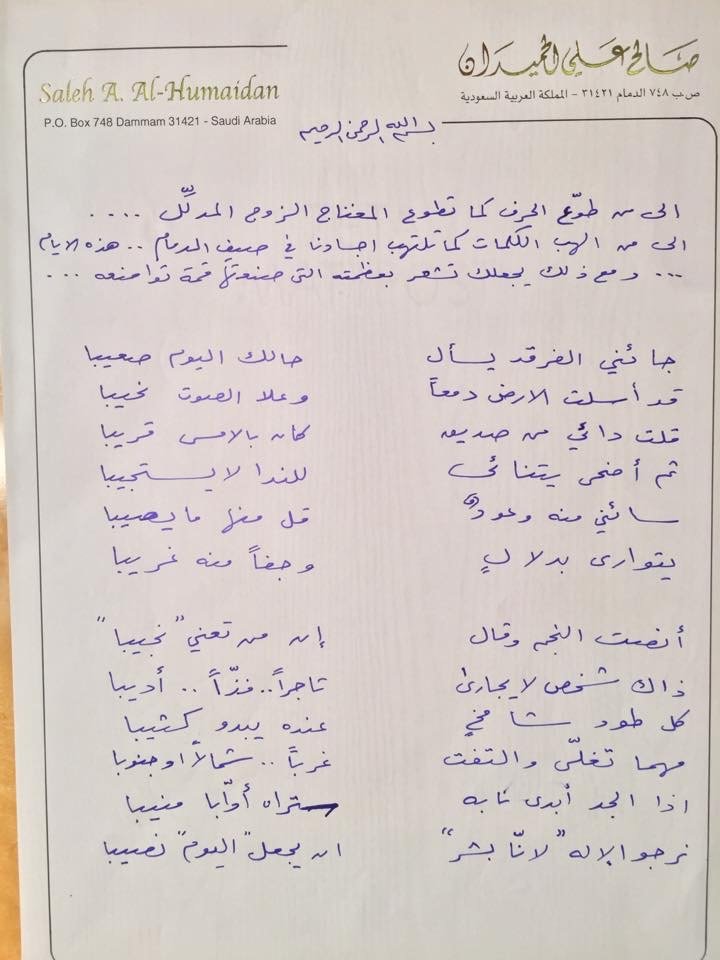 صالح علي الحميدان
ص.ب ٧٤٨ الدمام ٣١٤٢١ - المملكة العربية السعودية
Saleh A. Al-Humaidan
P.O. Box 748 Dammam 31421 - Saudi Arabia
بسم الله الرحمن الرحيم
الى من طوّع الحرف كما تطوع المغناج الزوج المدلّل ....
الى من الهب الكلمات كما تلتهب اجسادنا في صيف الدمام .. هذه الايام
... ومع ذلك يجعلك تشعر بعظمته التي صنعوتها قمة تواضعه ...
جائني الفرقد يسأل حالك اليوم صعيبا
قد أسلت الارض دمعاً وعلا الصوت نحيبا
قلت دائي من صديق كان بالامس قريبا
ثم أضحى يتنائى للندا لا يستجيبا
سائني منه وعودٌ قل منها ما يصيبا
يتوارى بدلالٍ وجفاً منه غريبا
أنصت النجم وقال إن من تعني "نجيبا"
ذاك شخص لا يجارى تاجراً .. فذّاً .. أديبا
كل طود شامخٍ عنده يبدو كثيبا
مهما تغلّى والتفت غرباً .. شمالاً او جنوبا
اذا الجد أبدى نابه ستراه أوّابا منيبا
نرجو الإله "لانّا بشر" ان يجعل "اليوم" نصيبا